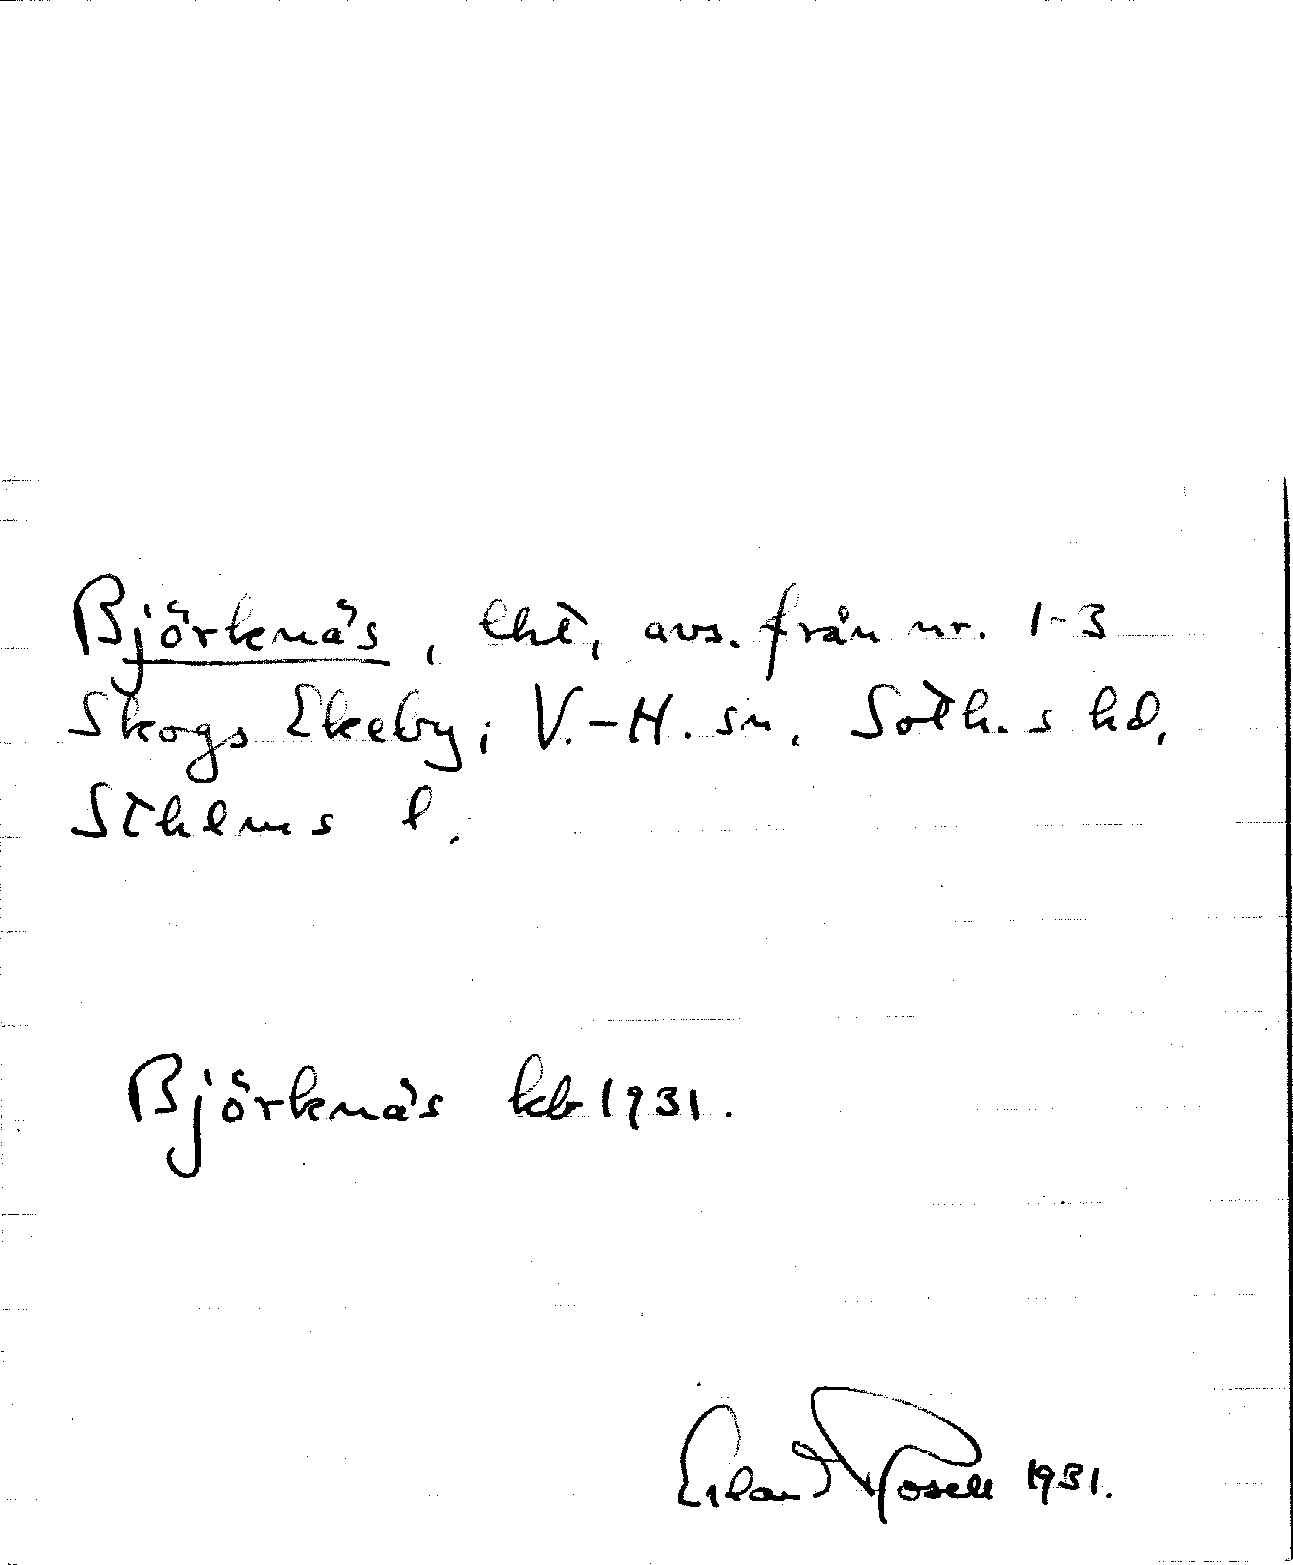 Björknäs, lht, avs. från nr. 1-3
Skogs Ekeby i V.-H. sn, Soth. s hd,
Sthlms l.
Björknäs kb 1931.
Erland Rosell 1931.